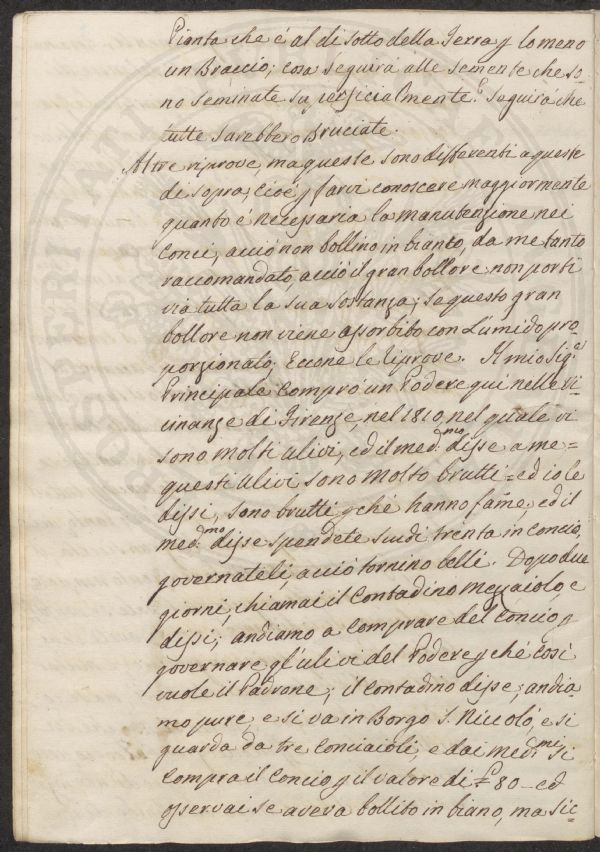 Pianta che é al di sotto della Terra p lo meno
un Braccio; cosa seguirá alle semente che so=
no seminate superficialmente. É seguirá che
tutte sarebbero Bruciate.
Altre riprove, ma queste sono differenti a queste
di sopra; cioé p farvi conoscere maggiormente
quanto é necessaria la manutenzione nei
Conci, acció non bollino in bianco, da me tanto
raccomandato, acció il gran bollore non porti
via tutta la sua sostanza; se questo gran
bollore non viene assorbito con L'umido pro=
porzionato; Eccone le riprove. Il mio Sig.e
Principale Compró un Podere qui nelle Vi=
cinanze di Firenze, nel 1810, nel quale vi
sono molti ulivi, ed il med.mo disse a me=
questi ulivi sono molto brutti= ed io le
dissi, sono brutti pché hanno fame, ed il
med.mo disse spendete scudi trenta in concio,
governateli, acció tornino belli. Dopo due
giorni, chiamai il Contadino Mezzaiolo, e
dissi; andiamo a comprare del Concio, p
governare gl'ulivi del Podere pché cosi
vuole il Padrone; il Contadino disse; andia=
mo pure, e si va in Borgo S. Niccoló, e si
guarda da tre Conciaioli, e dai med.mi si
Compra il Concio p il valore di £ 80 - ed
osservai se aveva bollito in biano, ma sic=